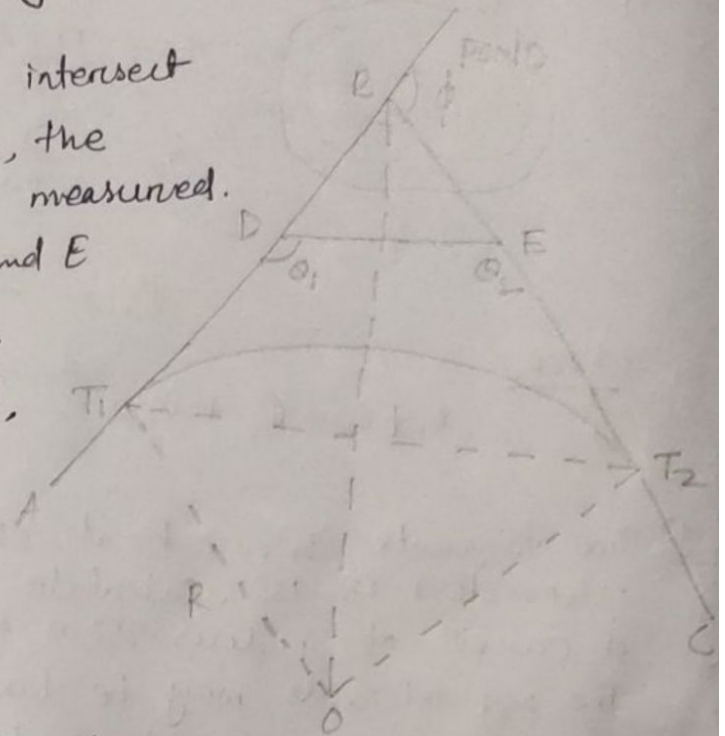 intersect
, the
measured.
and E
POND
B
ϕ
D
E
θ₁
θ₂
T₁
T₂
A
R
C
O